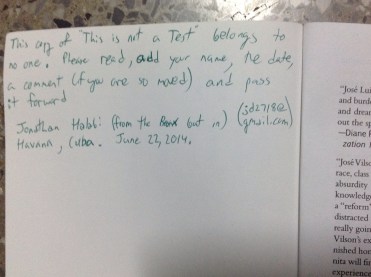 This copy of "This is not a Test" belongs to
no one. Please read, add your name, the date,
a comment (if you are so moved) and pass
it forward
Jonathan Halabi (from the Bronx but in) (jd2718@
gmail.com)
Havana, Cuba. June 22, 2014.
"José Lu
and burde
and drea
out the sp
—Diane R
zation
"José Vils
race, class
absurdity
knowledge
a "reform"
distracted
really goin
Vilson's ex
nished hor
nita will fi
experience